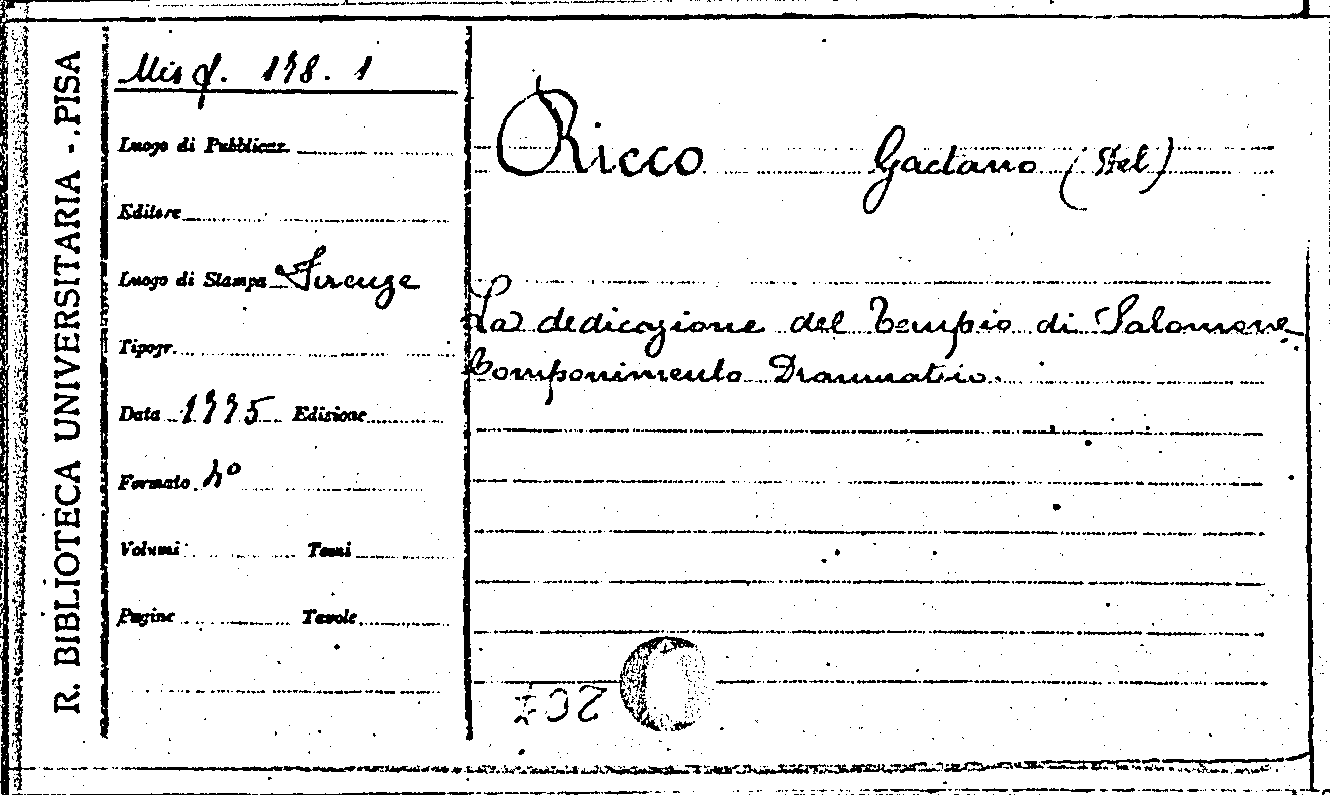 R. BIBLIOTECA UNIVERSITARIA - PISA
Misc. 178. 1
Luogo di Pubblicaz.
Editore
Luogo di Stampa Firenze
Tipogr.
Data 1775 Edizione
Formato 4°
Volumi Tomi
Pagine Tavole
Ricco Gaetano (Del)
La dedicazione del Tempio di Salomone
Componimento Drammatico.
207